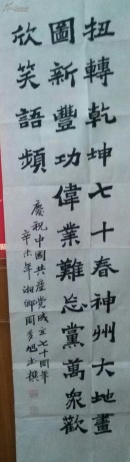 扭轉乾坤七十春神州大地畫
圖新豐功偉業難忘黨萬衆歡
欣笑語頻
慶祝中國共産党成立七十周年
辛未年湘鄉周